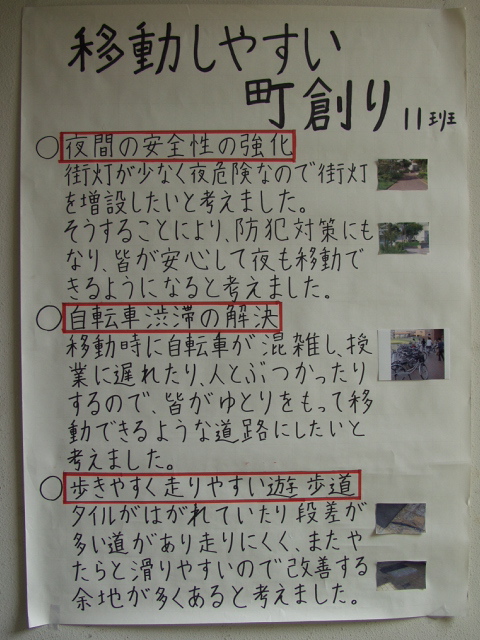 移動しやすい
町創り 11班
○夜間の安全性の強化
街灯が少なく夜危険なので街灯
を増設したいと考えました。
そうすることにより、防犯対策にも
なり、皆が安心して夜も移動で
きるようになると考えました。
○自転車渋滞の解決
移動時に自転車が混雑し、授
業に遅れたり、人とぶつかったり
するので、皆がゆとりをもって移
動できるような道路にしたいと
考えました。
○歩きやすく走りやすい遊歩道
タイルがはがれていたり段差が
多い道があり走りにくく、またや
たらと滑りやすいので改善する
余地が多くあると考えました。